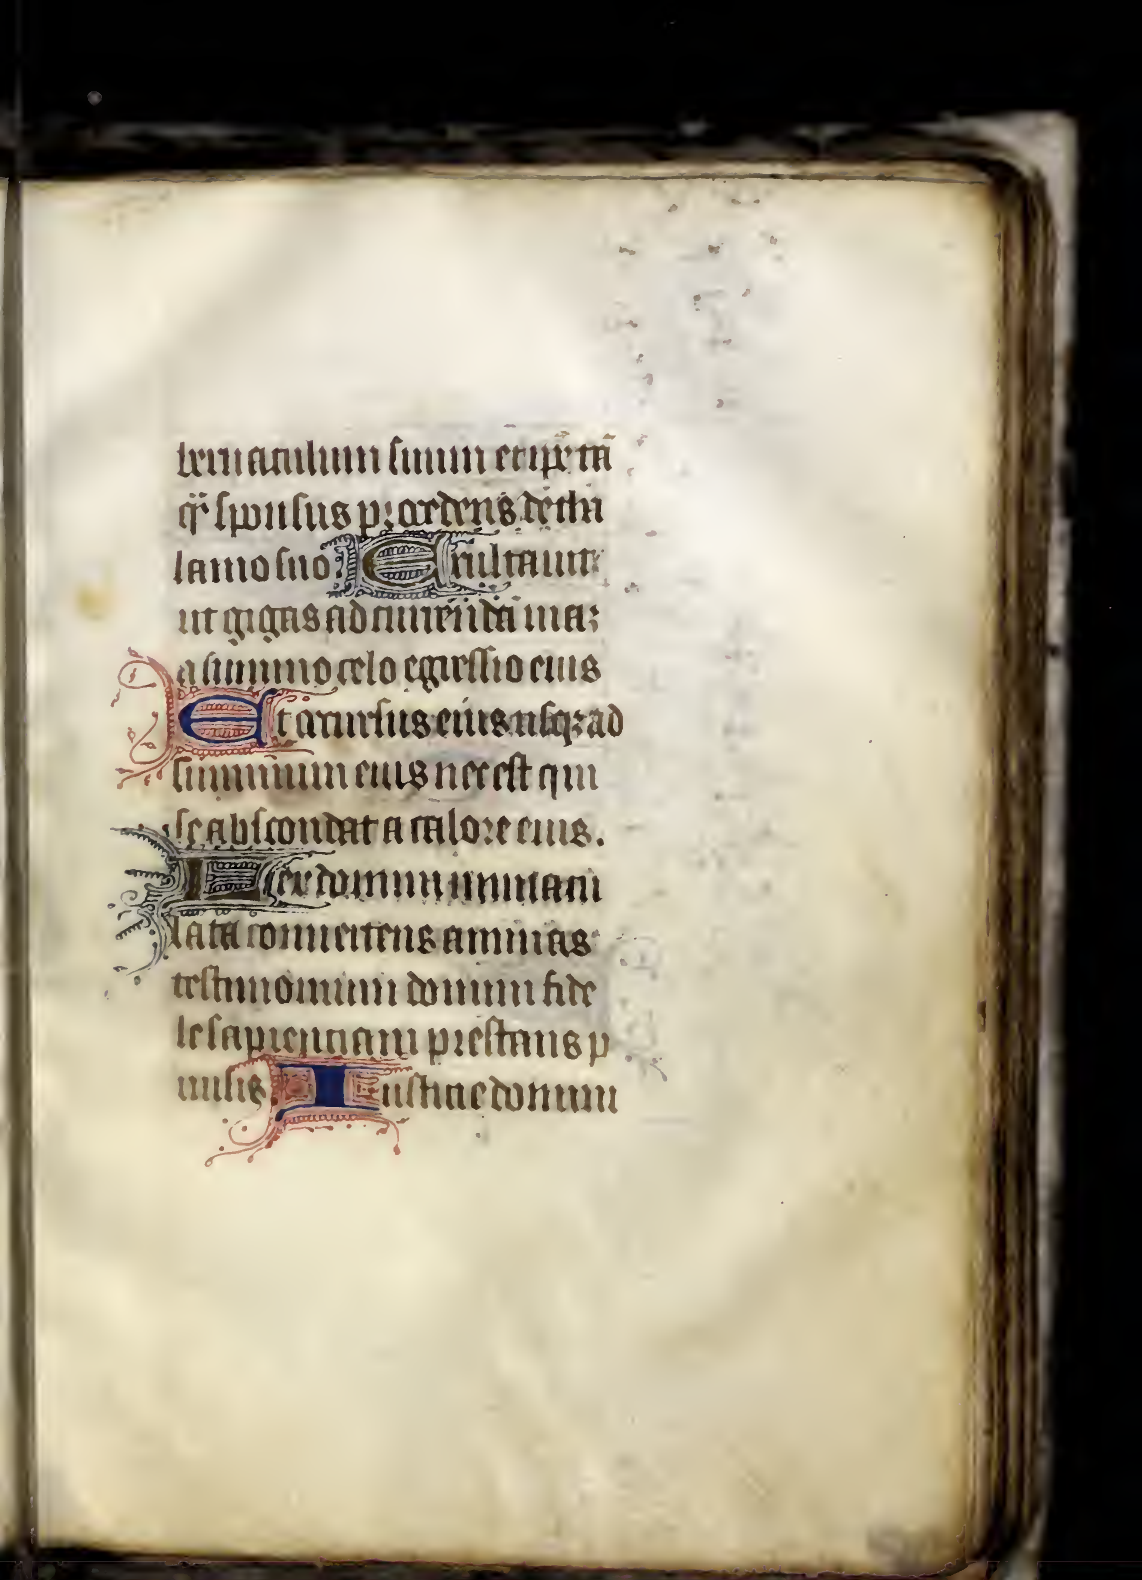 bernaculum suum et ip̄e tā
q̄ sponsus procedens de tha
lamo suo. Exultauit
ut gigas ad currendā uiā
a summo celo egressio eius
Et occursus eius usq; ad
summum eius nec est qui
se abscondat a calore eius.
Lex domini inmacu
lata conuertens animas
testimonium domini fide
le sapienciam prestans p
uulis. Iusticie domini